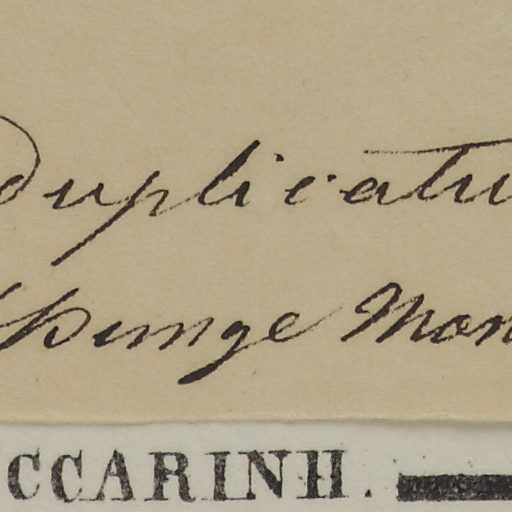 Duplicatu
Spunge Mon
CCARINH.